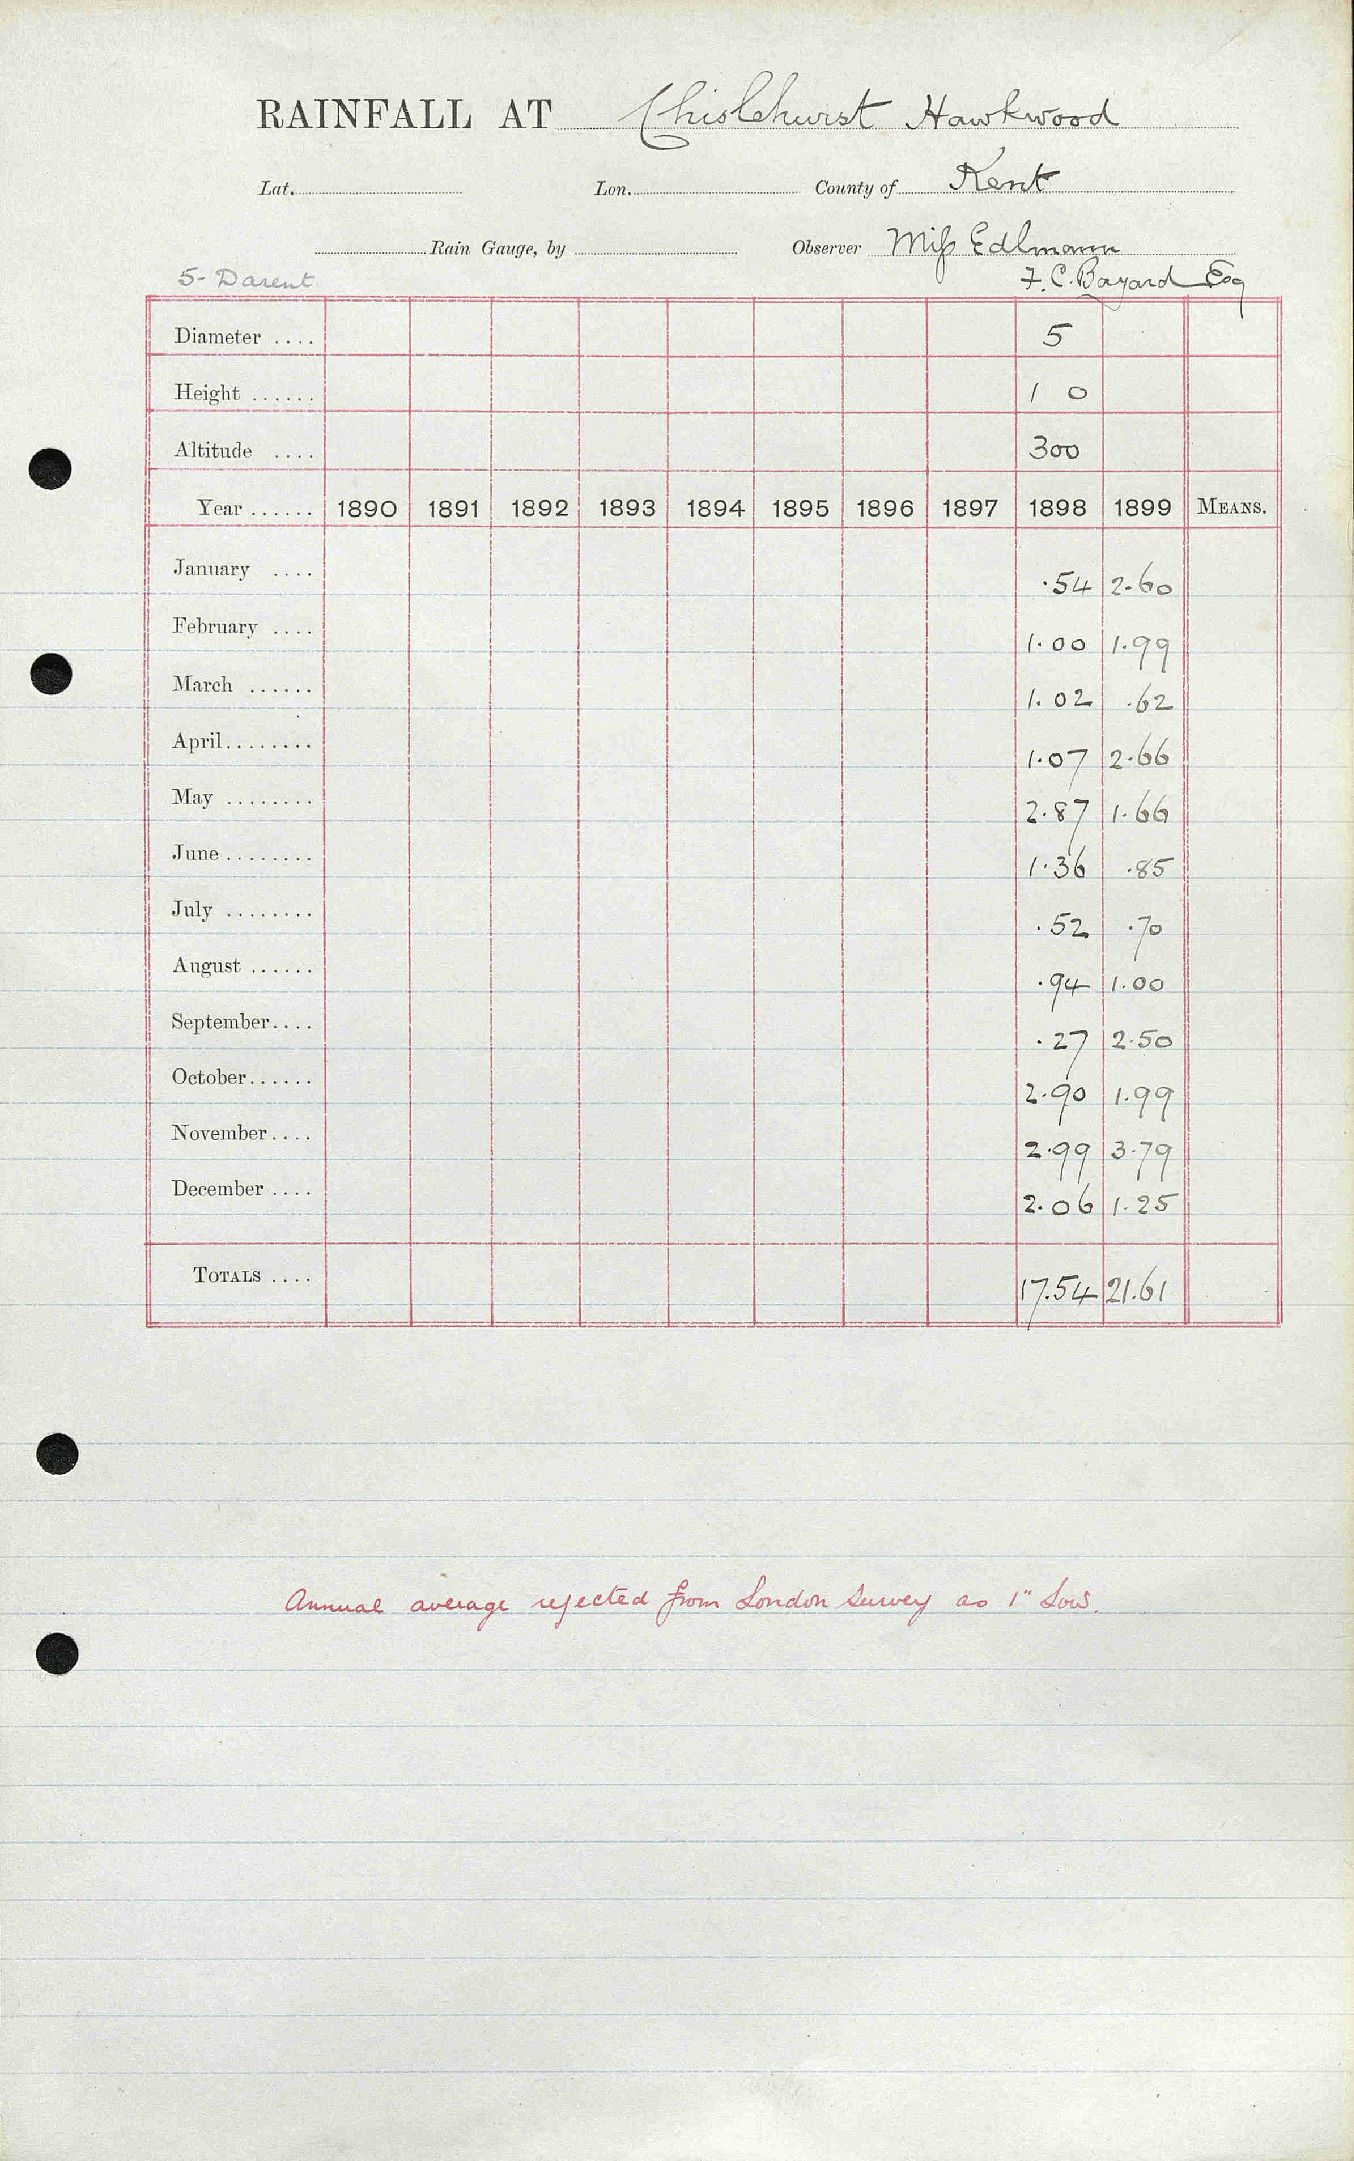 RAINFALL AT Chislehurst Hawkwood
Lat. Lon. County of Kent
Rain Gauge, by Observer Miss Edlmann
5- Darent F. C. Bayard Esq
Diameter .... 5
Height ...... 1 0
Altitude .... 300
Year ...... 1890 1891 1892 1893 1894 1895 1896 1897 1898 1899 MEANS.
January .... .54 2.60
February .... 1.00 1.99
March ...... 1.02 .62
April........ 1.07 2.66
May ........ 2.87 1.66
June ........ 1.36 .85
July ........ .52 .70
August ...... .94 1.00
September.... .27 2.50
October...... 2.90 1.99
November.... 2.99 3.79
December .... 2.06 1.25
TOTALS .... 17.54 21.61
Annual average rejected from London Survey as 1" low.